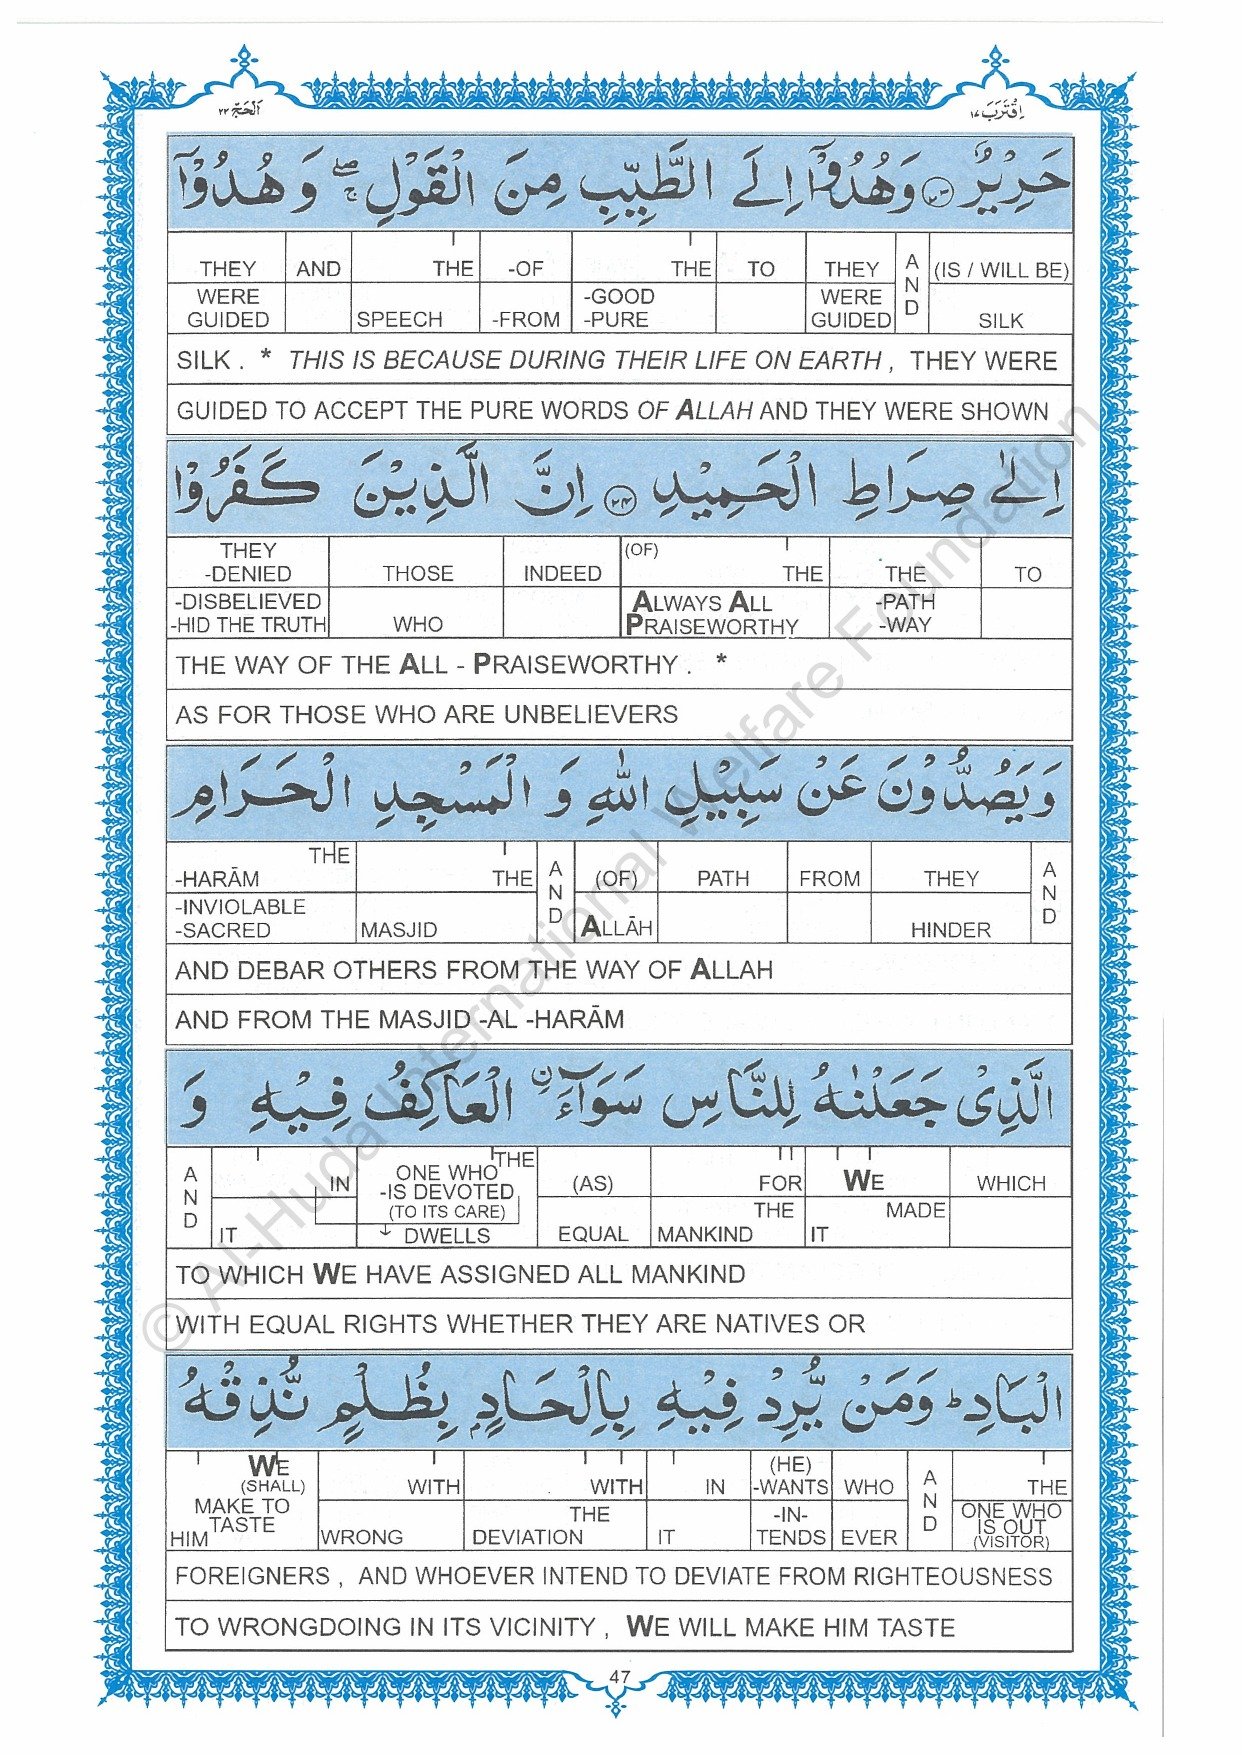 اَلْحَجّ ٢٢
اِقْتَرَبَ ١٧
حَرِيْرٌ ۝٢٣ وَهُدُوْۤا اِلَى الطَّيِّبِ مِنَ الْقَوْلِ ۖۚ وَ هُدُوْۤا
THEY AND THE -OF THE TO THEY AND (IS / WILL BE)
WERE GUIDED SPEECH -FROM -GOOD -PURE WERE GUIDED SILK
SILK . * THIS IS BECAUSE DURING THEIR LIFE ON EARTH , THEY WERE
GUIDED TO ACCEPT THE PURE WORDS OF ALLAH AND THEY WERE SHOWN
اِلٰى صِرَاطِ الْحَمِيْدِ ۝٢٤ اِنَّ الَّذِيْنَ كَفَرُوْا
THEY -DENIED THOSE INDEED (OF) THE THE TO
-DISBELIEVED -HID THE TRUTH WHO ALWAYS ALL PRAISEWORTHY -PATH -WAY
THE WAY OF THE ALL - PRAISEWORTHY . *
AS FOR THOSE WHO ARE UNBELIEVERS
وَ يَصُدُّوْنَ عَنْ سَبِيْلِ اللّٰهِ وَ الْمَسْجِدِ الْحَرَامِ
THE -HARĀM THE AND (OF) PATH FROM THEY AND
-INVIOLABLE -SACRED MASJID ALLĀH HINDER
AND DEBAR OTHERS FROM THE WAY OF ALLAH
AND FROM THE MASJID -AL -HARĀM
الَّذِىْ جَعَلْنٰهُ لِلنَّاسِ سَوَآءَ ۨ الْعَاكِفُ فِيْهِ وَ
AND IN THE ONE WHO -IS DEVOTED (TO ITS CARE) (AS) FOR WE WHICH
IT DWELLS EQUAL THE MANKIND MADE IT
TO WHICH WE HAVE ASSIGNED ALL MANKIND
WITH EQUAL RIGHTS WHETHER THEY ARE NATIVES OR
الْبَادِ ؕ وَمَنْ يُّرِدْ فِيْهِ بِاِلْحَادٍۭ بِظُلْمٍ نُّذِقْهُ
WE (SHALL) WITH WITH IN (HE) -WANTS WHO AND THE
MAKE TO TASTE HIM WRONG THE DEVIATION IT -IN- TENDS EVER ONE WHO IS OUT (VISITOR)
FOREIGNERS , AND WHOEVER INTEND TO DEVIATE FROM RIGHTEOUSNESS
TO WRONGDOING IN ITS VICINITY , WE WILL MAKE HIM TASTE
47
© Al-Huda International Welfare Foundation